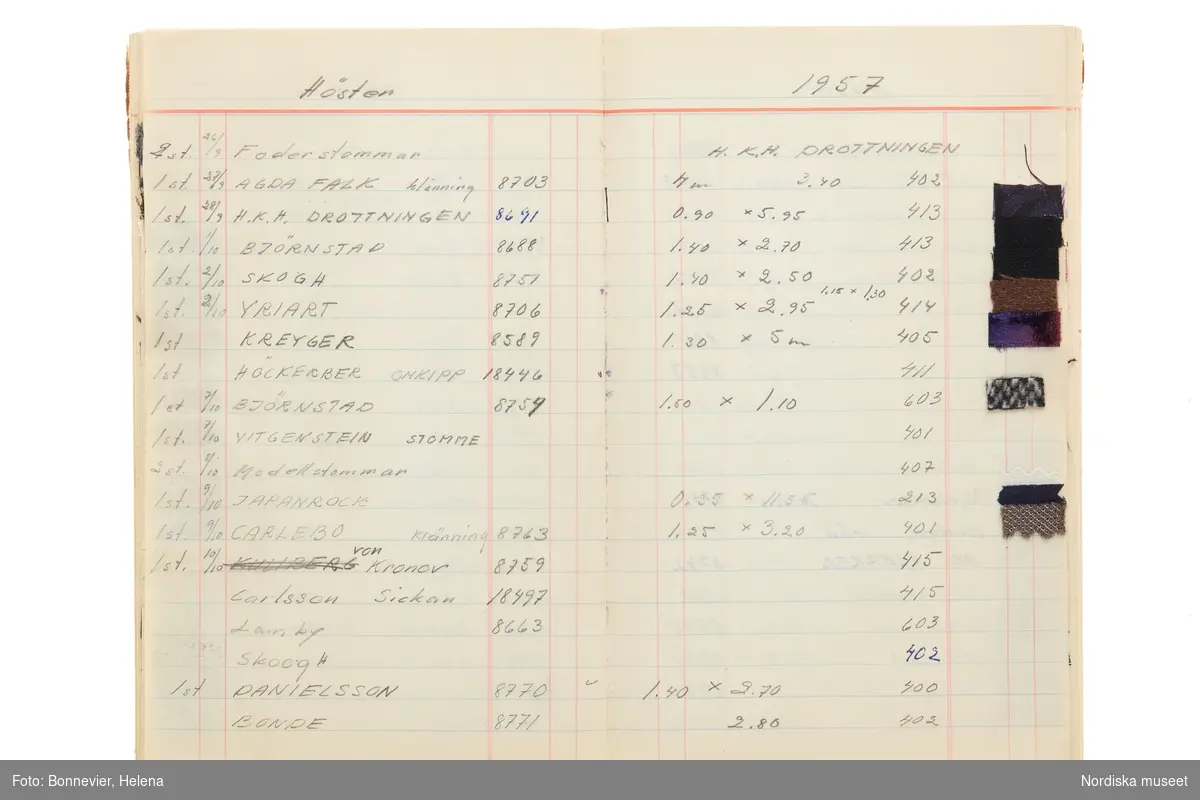 Hösten 1957
2st. 26/9 Foderstommar H.K.H. DROTTNINGEN
1st. 27/9 AGDA FALK klänning 8703 4m 3.40 402
1st. 28/9 H.K.H. DROTTNINGEN 8691 0.90 × 5.95 413
1st. 1/10 BJÖRNSTAD 8688 1.40 × 2.70 413
1st. 2/10 SKOGH 8751 1.40 × 2.50 402
1st. 2/10 YRIART 8706 1.25 × 2.95 1.15 × 1.30 414
1st KREYGER 8589 1.30 × 5m 405
1st HÖCKERBER OMKIPP 18446 411
1st 7/10 BJÖRNSTAD 8754 1.50 × 1.10 603
1st. 7/10 VITGENSTEIN STOMME 401
2st. 8/10 Modellstommar 407
1st. 9/10 JAPANROCK 0.35 × 11.55 213
1st. 9/10 CARLEBO Klänning 8763 1.25 × 3.20 401
1st. 10/10 von Kronor 8759 415
Carlsson Sickan 18497 415
Lamby 8663 603
Skoog H 402
1st DANIELSSON 8770 1.40 × 2.70 400
BONDE 8771 2.80 402
Foto: Bonnevier, Helena Nordiska museet